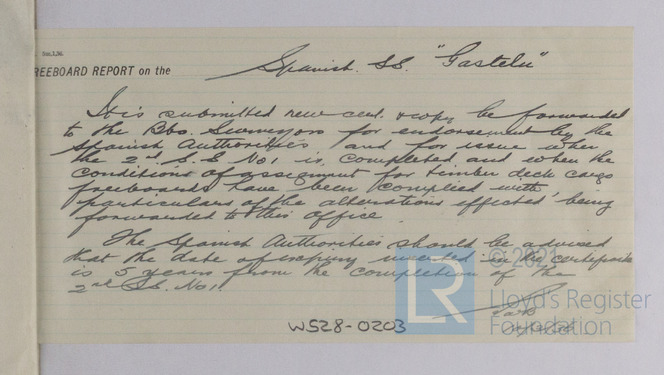 REEBOARD REPORT on the Spanish. SS. "Gastelu"
It is submitted new cert. & copy be forwarded
to the Bbo. Surveyors for endorsement by the
Spanish Authorities and for issue when
the 2nd S.S. No 1 is completed and when the
conditions of assignment for timber deck cargo
freeboards have been complied with
particulars of the alterations effected being
forwarded to this office
The Spanish Authorities should be advised
that the date of expiry inserted in the certificate
is 5 years from the completion of the
2nd S.S. No 1
W528-0203
© 2021
LR
Lloyd's Register
Foundation